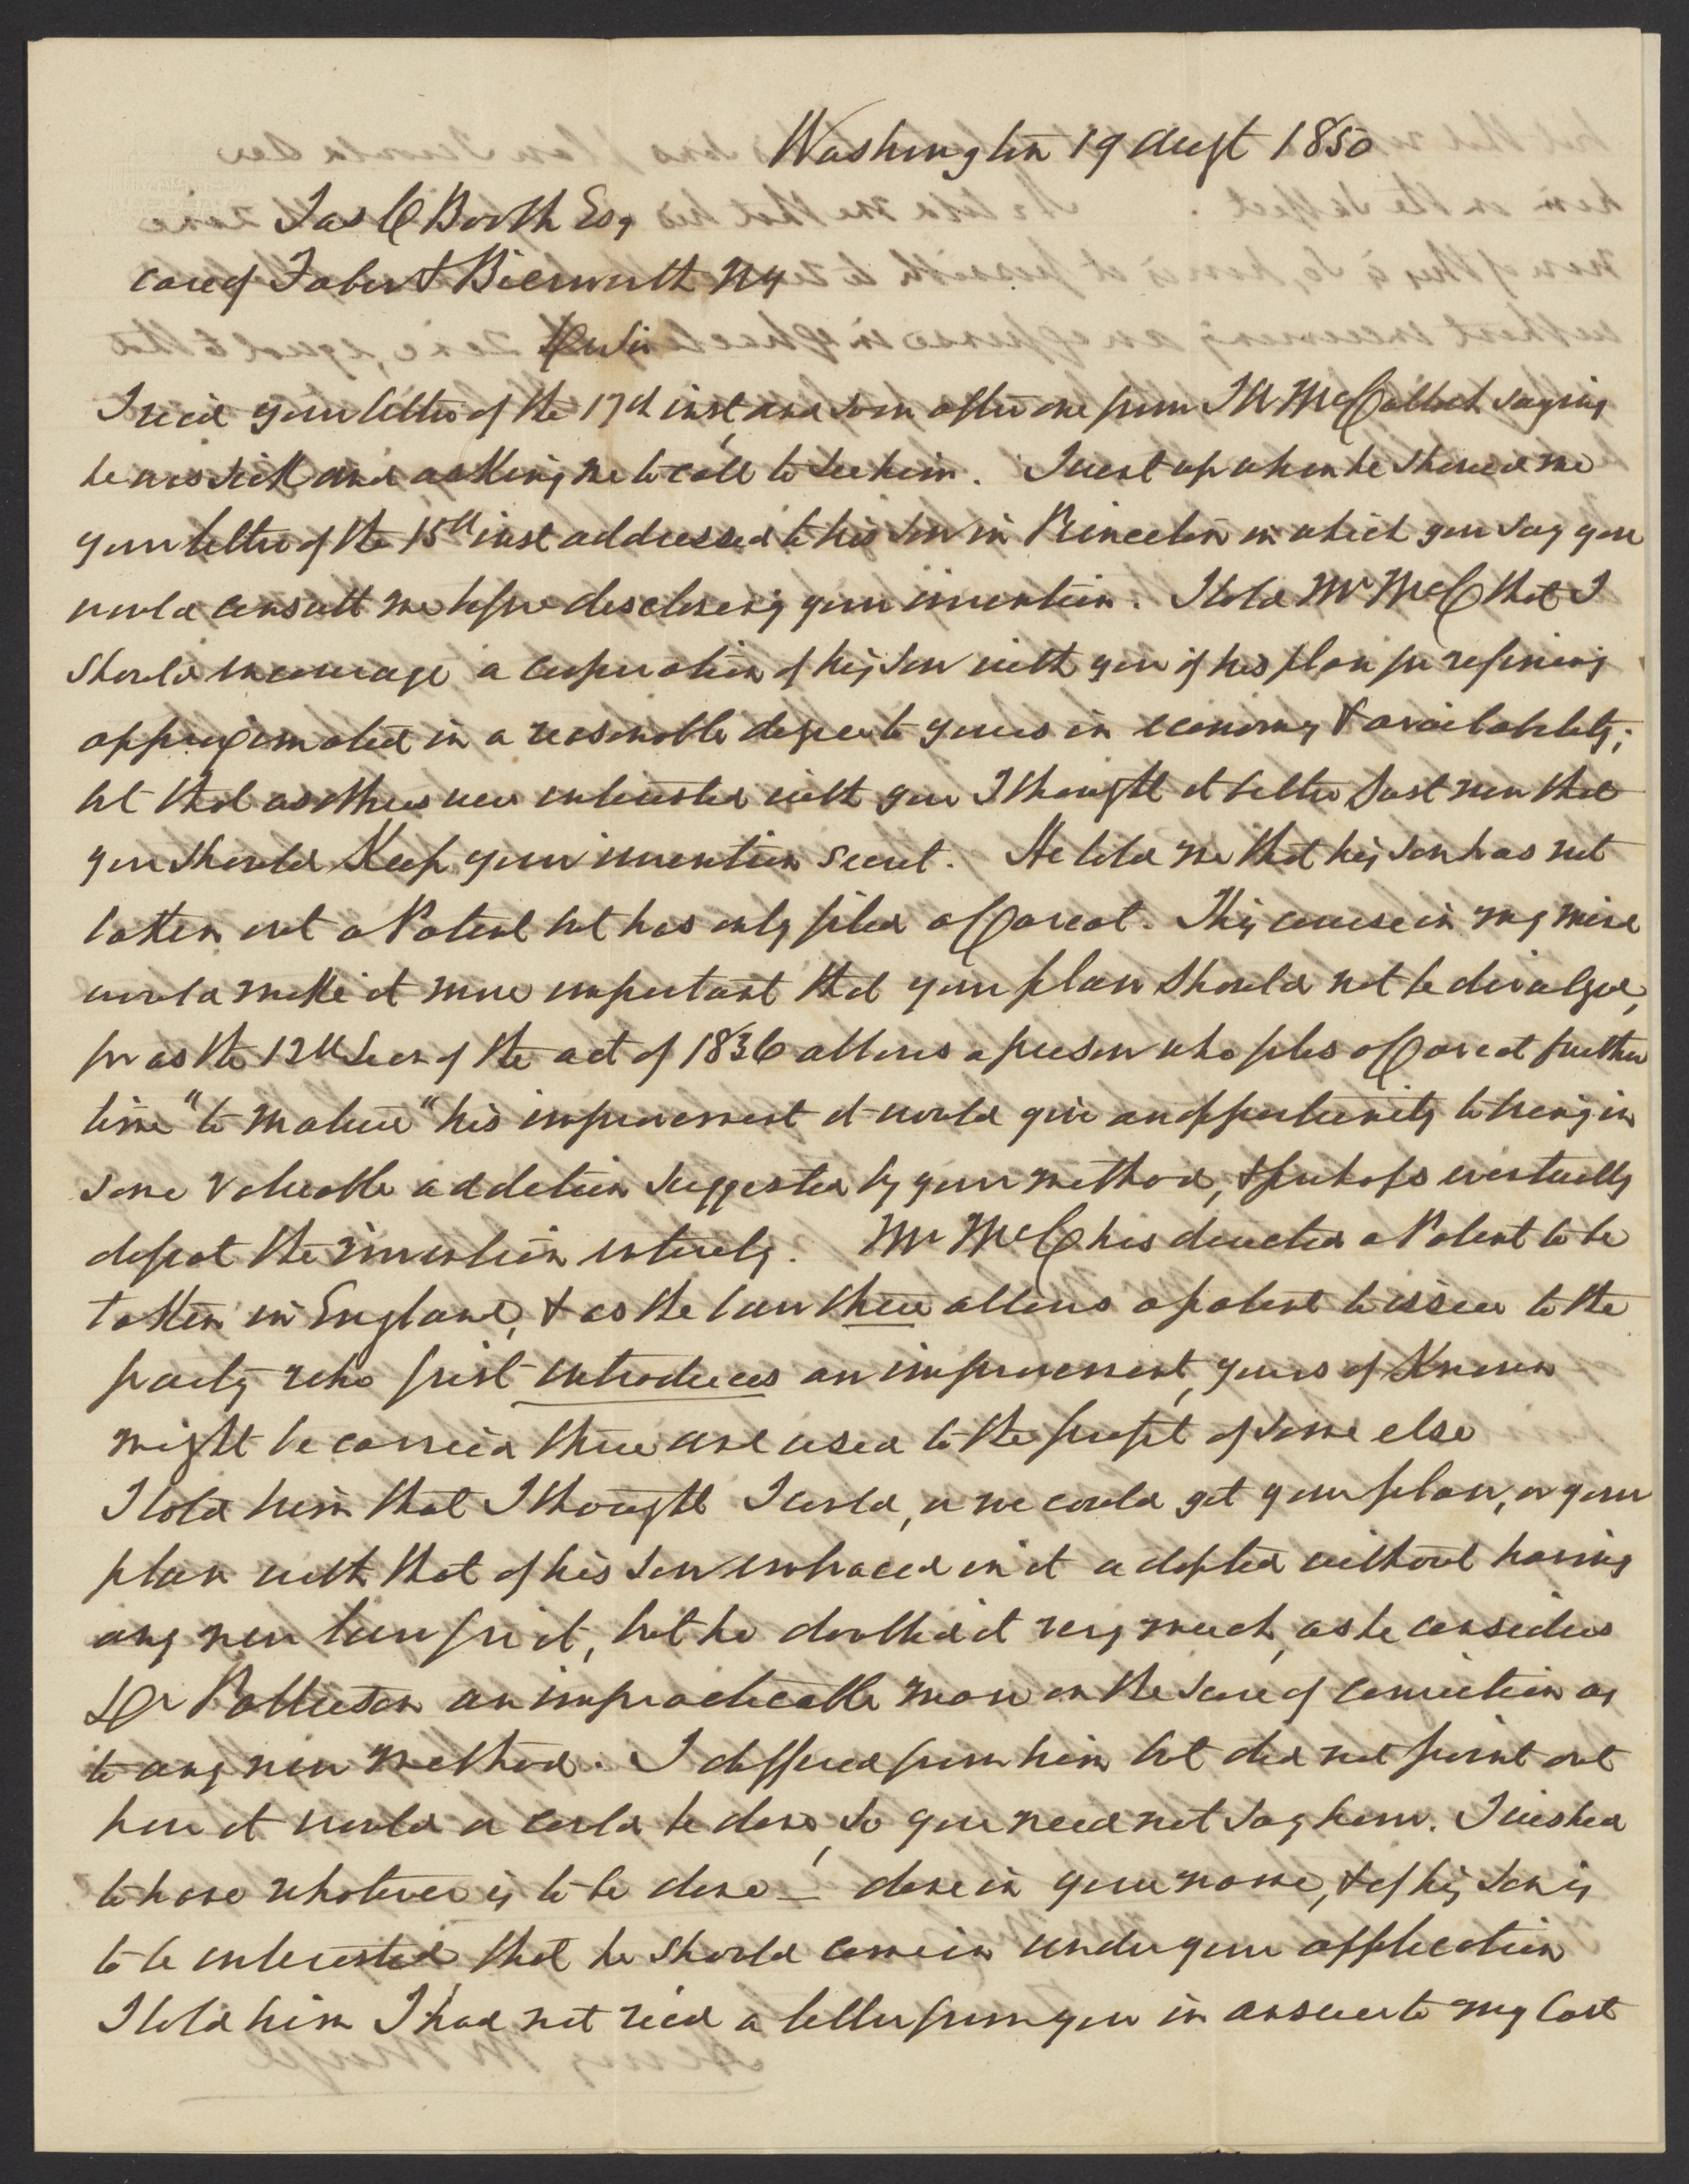 Washington 19 Augt 1850
Jas C Booth Esq
care of Faber & Bierwirth NY
Dr Sir
I recd your letter of the 17th inst, and soon after one from J W McCulloch saying
he was sick and asking me to call to see him. I went up when he showed me
your letter of the 15th inst addressed to his son in Princeton in which you say you
would consult me before disclosing your invention. I told Mr McC that I
should encourage a cooperation of his son with you if his plan for refining
approximated in a reasonable degree to yours in economy & availability;
but that as others were interested with you I thought it better just now that
you should keep your invention secret. He told me that his son has not
taken out a Patent but has only filed a Caveat. This course in my mind
would make it more important that your plan should not be divulged,
for as the 12th Secn of the act of 1836 allows a person who files a Caveat further
time "to mature" his improvement it would give an opportunity to bring in
some valuable addition suggested by your method, & perhaps eventually
defeat the invention entirely. Mr McC has directed a Patent to be
taken in England, & as the law there allows a patent to issue to the
party who first introduces an improvement, yours if known
might be carried there and used to the profit of some else
I told him that I thought I could, or we could get your plan, or your
plan with that of his son embraced in it adopted without having
any new law for it, but he doubted it very much, as he considers
Dr Patterson an impracticable man on the score of conviction as
to any new method. I differed from him but did not point out
how it would or could be done, so you need not say how. I wished
to have whatever is to be done — done in your name, & if his son is
to be interested, that he should come in under your application
I told him I had not recd a letter from you in answer to my last